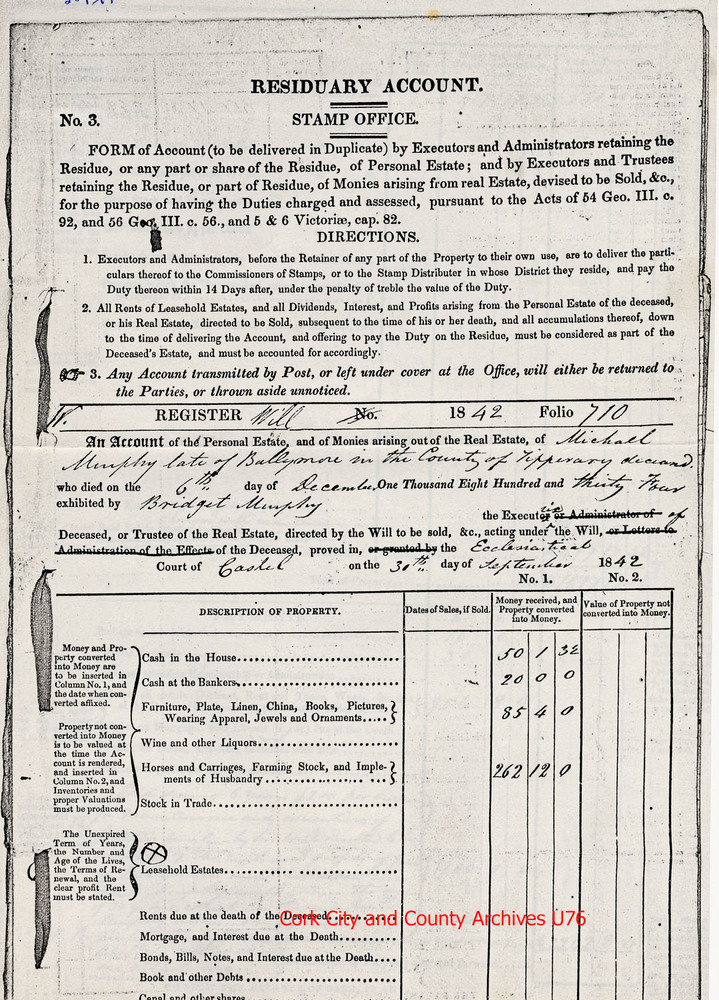 RESIDUARY ACCOUNT.
No. 3.
STAMP OFFICE.
FORM of Account (to be delivered in Duplicate) by Executors and Administrators retaining the
Residue, or any part or share of the Residue, of Personal Estate; and by Executors and Trustees
retaining the Residue, or part of Residue, of Monies arising from real Estate, devised to be Sold, &c.,
for the purpose of having the Duties charged and assessed, pursuant to the Acts of 54 Geo. III. c.
92, and 56 Geo. III. c. 56., and 5 & 6 Victoriæ, cap. 82.
DIRECTIONS.
1. Executors and Administrators, before the Retainer of any part of the Property to their own use, are to deliver the parti-
culars thereof to the Commissioners of Stamps, or to the Stamp Distributer in whose District they reside, and pay the
Duty thereon within 14 Days after, under the penalty of treble the value of the Duty.
2. All Rents of Leasehold Estates, and all Dividends, Interest, and Profits arising from the Personal Estate of the deceased,
or his Real Estate, directed to be Sold, subsequent to the time of his or her death, and all accumulations thereof, down
to the time of delivering the Account, and offering to pay the Duty on the Residue, must be considered as part of the
Deceased's Estate, and must be accounted for accordingly.
3. Any Account transmitted by Post, or left under cover at the Office, will either be returned to
the Parties, or thrown aside unnoticed.
REGISTER Will No. 1842 Folio 710
An Account of the Personal Estate, and of Monies arising out of the Real Estate, of Michael
Murphy late of Ballymore in the County of Tipperary deceased.
who died on the 6th day of December One Thousand Eight Hundred and thirty four
exhibited by Bridget Murphy
the Executrix or Administrator of of
Deceased, or Trustee of the Real Estate, directed by the Will to be sold, &c., acting under the Will, or Letters to
Administration of the Effects of the Deceased, proved in, or granted by the Ecclesiastical
Court of Cashel on the 30th day of September 1842
No. 1. No. 2.
DESCRIPTION OF PROPERTY.
Dates of Sales, if Sold.
Money received, and
Property converted
into Money.
Value of Property not
converted into Money.
Money and Pro-
perty converted
into Money are
to be inserted in
Column No. 1, and
the date when con-
verted affixed.
Property not con-
verted into Money
is to be valued at
the time the Ac-
count is rendered,
and inserted in
Column No. 2, and
Inventories and
proper Valuations
must be produced.
Cash in the House 50 1 3½
Cash at the Bankers 20 0 0
Furniture, Plate, Linen, China, Books, Pictures,
Wearing Apparel, Jewels and Ornaments 85 4 0
Wine and other Liquors
Horses and Carriages, Farming Stock, and Imple-
ments of Husbandry 262 12 0
Stock in Trade
The Unexpired
Term of Years,
the Number and
Age of the Lives,
the Terms of Re-
newal, and the
clear profit Rent
must be stated.
Leasehold Estates
Rents due at the death of the Deceased
Cork City and County Archives U76
Mortgage, and Interest due at the Death
Bonds, Bills, Notes, and Interest due at the Death
Book and other Debts
Canal and other shares